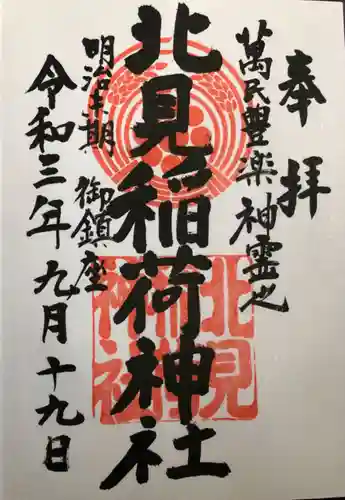 奉拝
萬民豊楽神霊也
北見稲荷神社
明治上期 御鎮座
令和三年九月十九日
北見
稲荷
神社